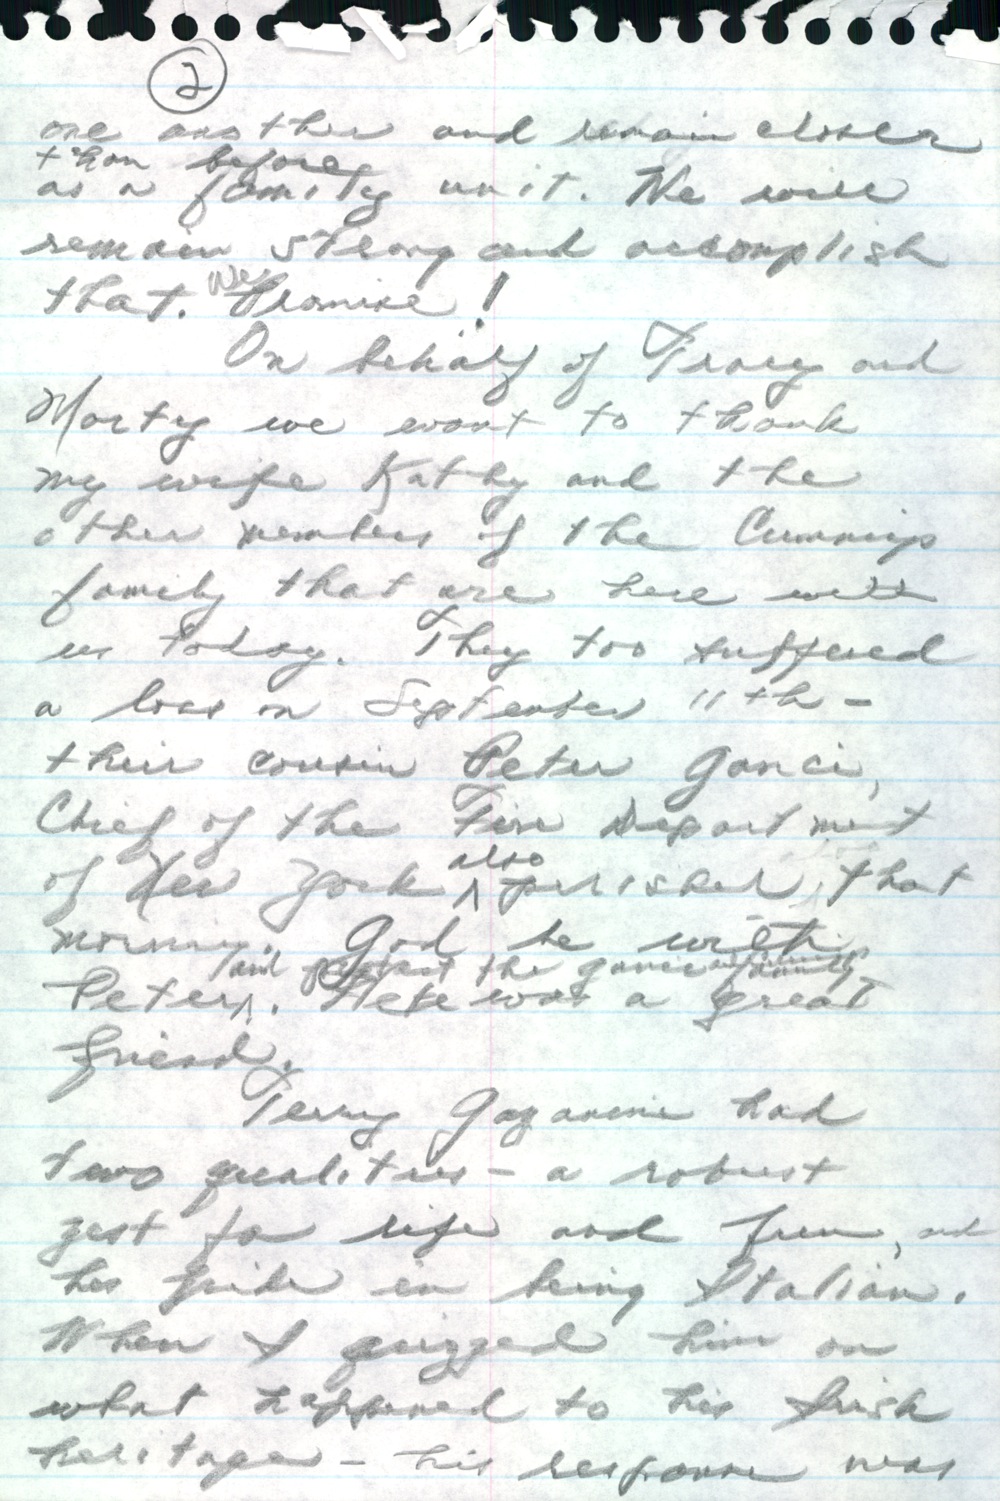 2
one another and remain closer
than before
as a family unit. We will
remain strong and accomplish
that. We Promise!
On behalf of Tracy and
Marty we want to thank
my wife Kathy and the
other members of the Cummings
family that are here with
us today. They too suffered
a loss on September 11th -
their cousin Peter Ganci,
Chief of the Fire Department
of New York also perished that
morning. God be with
and protect the Ganci family
Peter. He was a great
friend.
Terry Gazzani had
two qualities - a robust
zest for life and fun, and
his pride in being Italian.
When I quizzed him on
what happened to his Irish
heritage - his response was